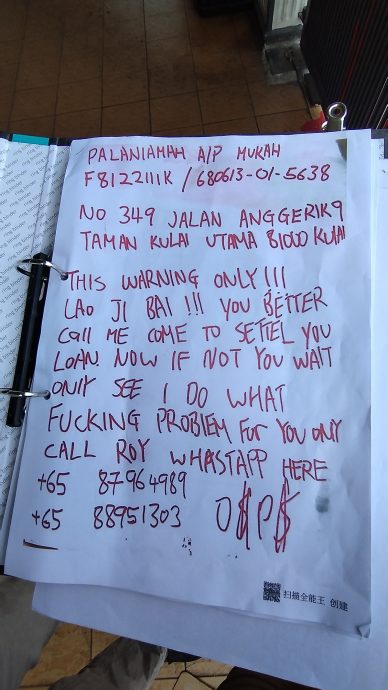 PALANIAMAH A/P MUKAH
F8122111K / 680613-01-5638
NO 349 JALAN ANGGERIK 9
TAMAN KULAI UTAMA 81000 KULAI
THIS WARNING ONLY!!!
LAO JI BAI !!! YOU BETTER
Call ME COME TO SETTEL YOU
LOAN NOW IF NOT YOU WAIT
ONLY SEE I DO WHAT
FUCKING PROBLEM FoR YOU ONLY
CALL ROY WHASTAPP HERE
+65 87964989
+65 88951303 O$P$
扫描全能王 创建